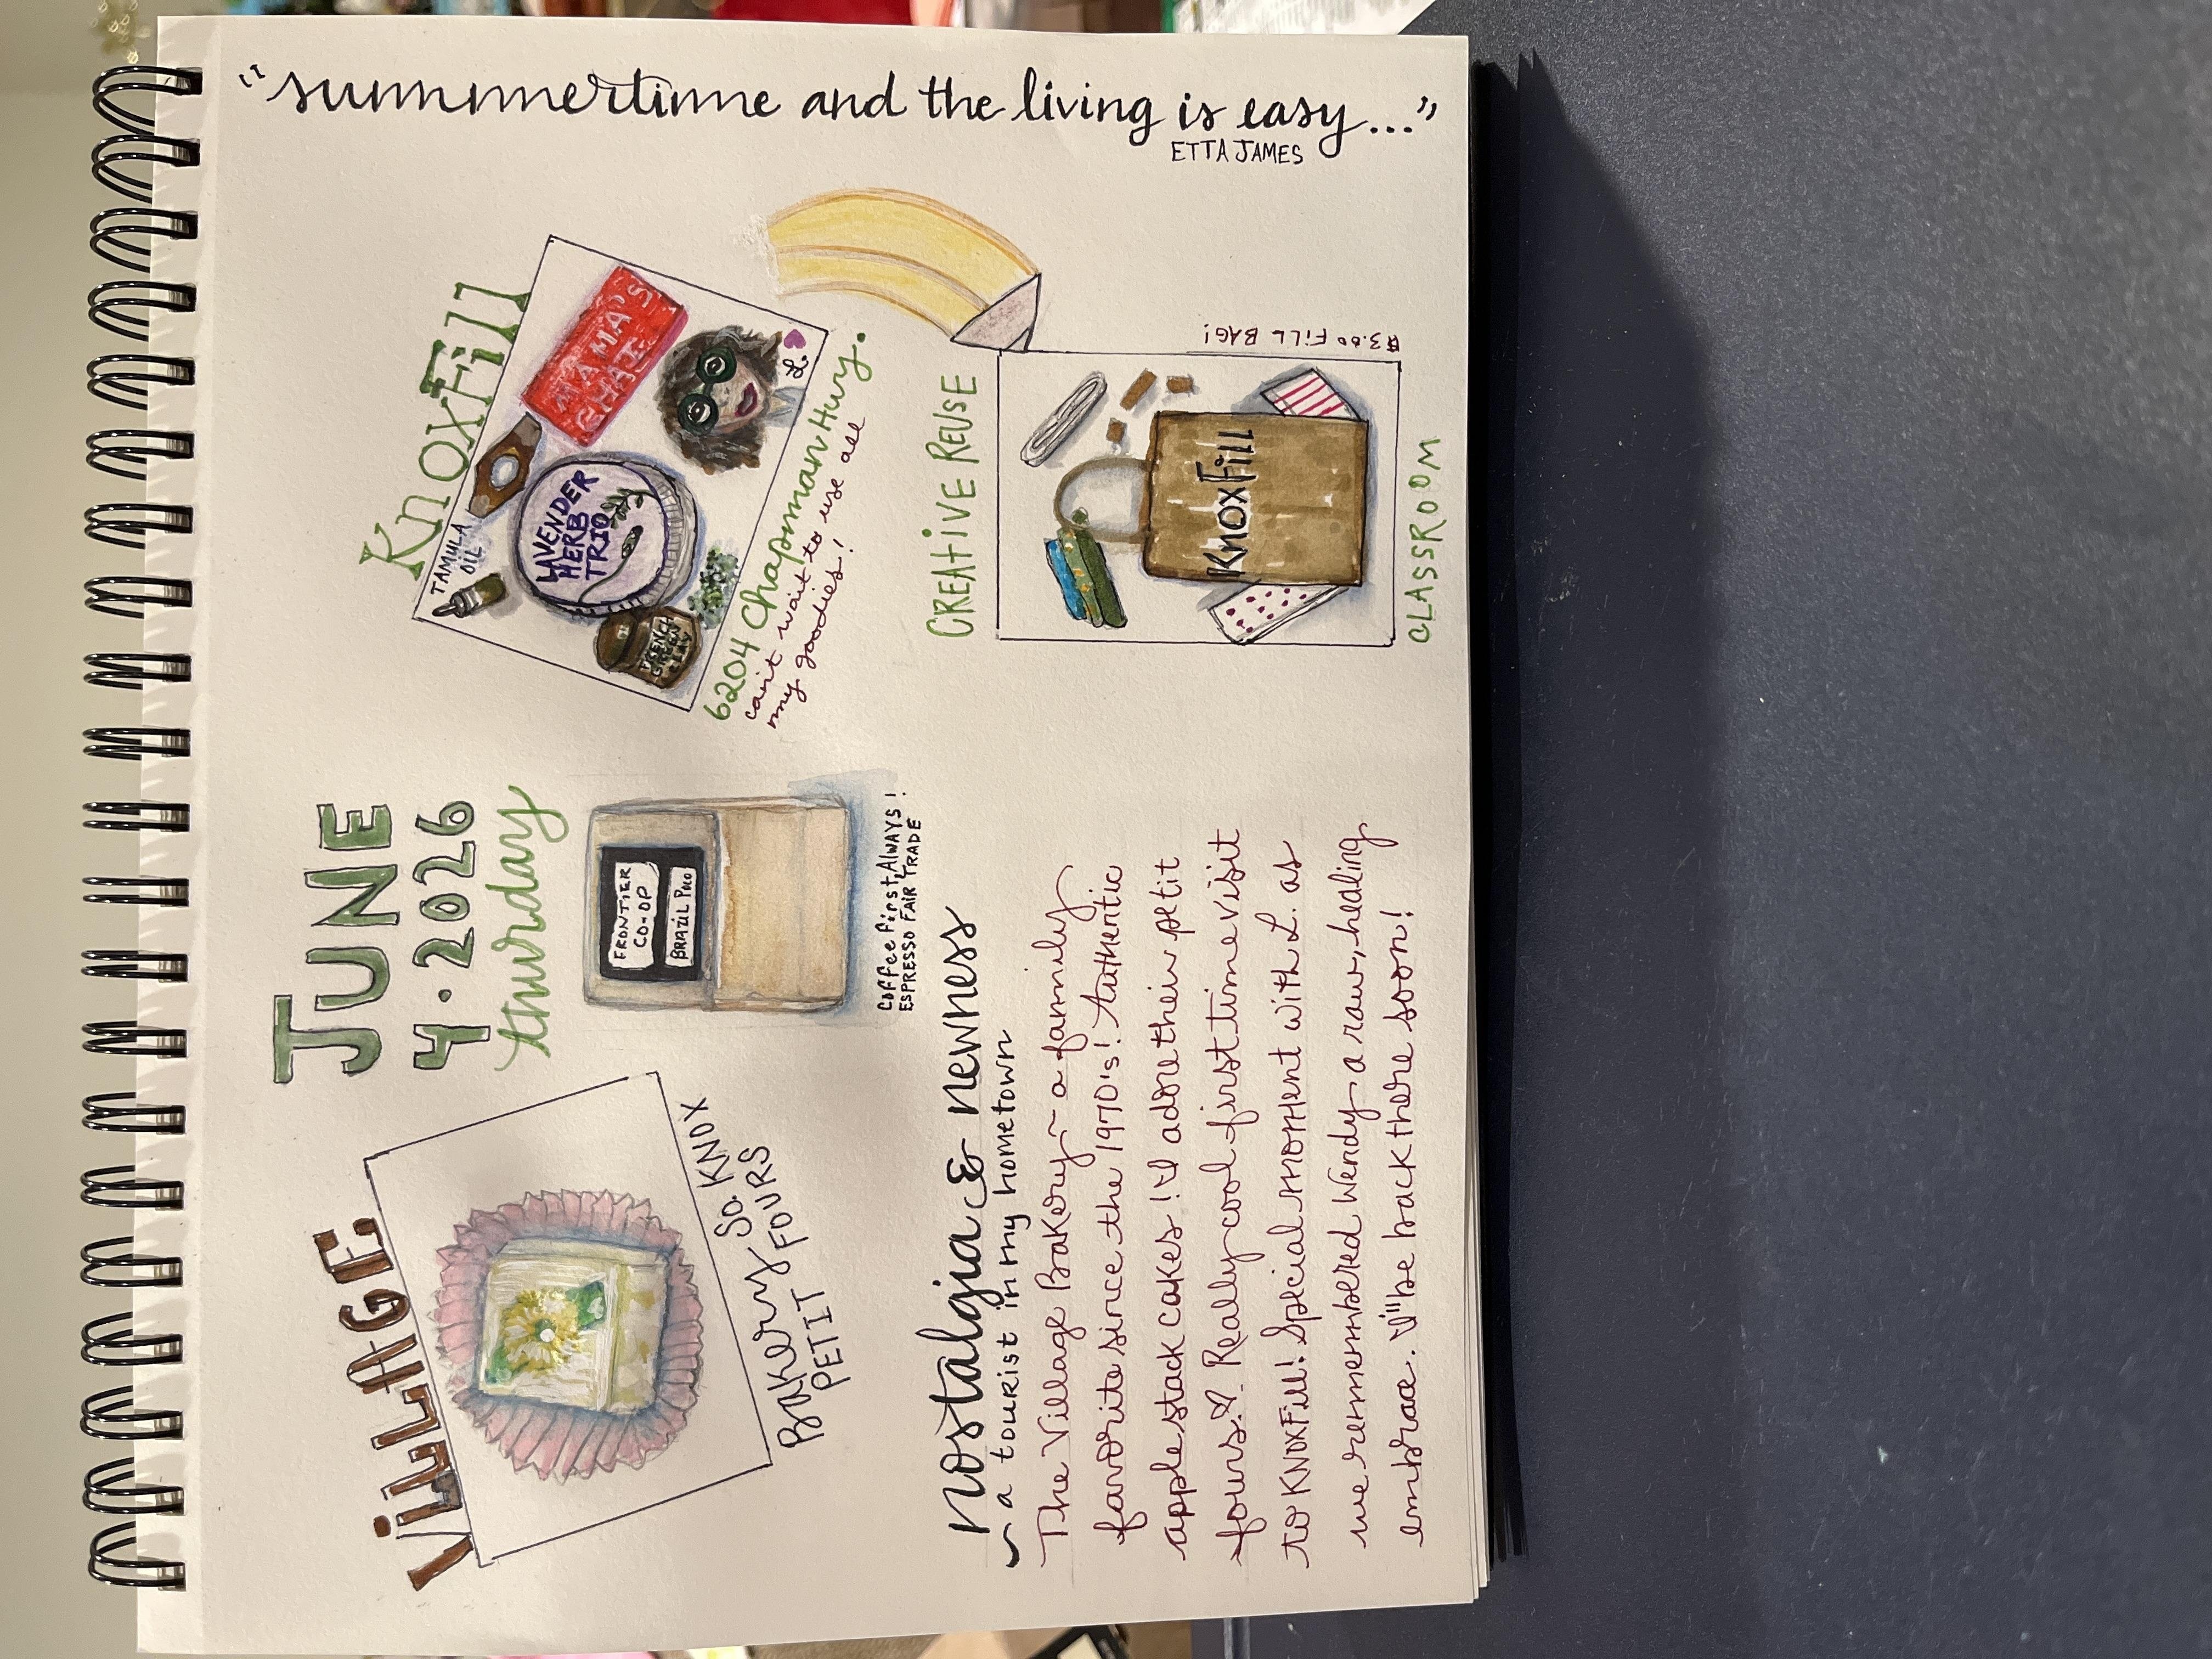 JUNE
4.2026
thursday
VILLAGE
Bakery So. KNOX
PETIT FOURS
FRONTIER
CO-OP
BRAZIL POCO
Coffee first, ALWAYS!
ESPRESSO FAIR TRADE
KnoxFill
TAMULA
OIL
MAMA'S
CHAI
LAVENDER
HERB
TRIO
FRENCH
GREEN
CLAY
L.
6204 Chapman Hwy.
can't wait to use all
my goodies!
nostalgia & newness
~ a tourist in my hometown
The Village Bakery~ a family
favorite since the 1970's! Authentic
apple stack cakes! I adore their petit
fours. Really cool first time visit
to KNOXFill! Special moment with L. as
we remembered Wendy~ a raw, healing
embrace. I'll be back there soon!
CREATIVE REUSE
$3.00 FILL BAG!
KnoxFill
CLASSROOM
"summertime and the living is easy..."
ETTA JAMES